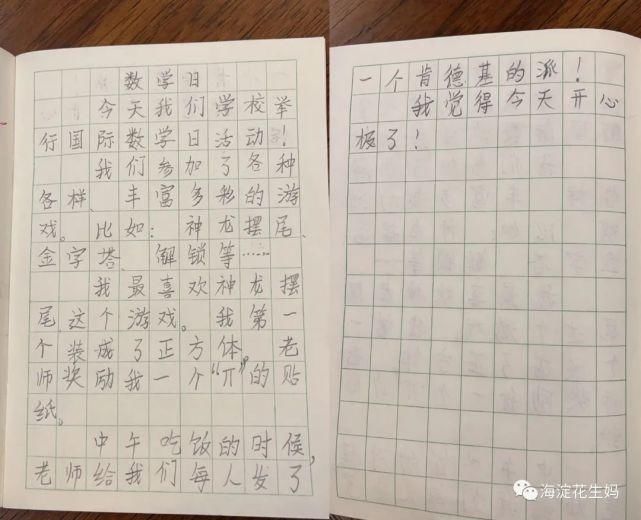 数学日
今天我们学校举
行国际数学日活动！
我们参加了各种
各样、丰富多彩的游
戏。比如：神龙摆尾、
金字塔、解锁等……
我最喜欢神龙摆
尾这个游戏。我第一
个装成了正方体。老
师奖励我一个“π”的贴
纸。
中午吃饭的时候，
老师给我们每人发了
一个肯德基的派！
我觉得今天开心
极了！
海淀花生妈